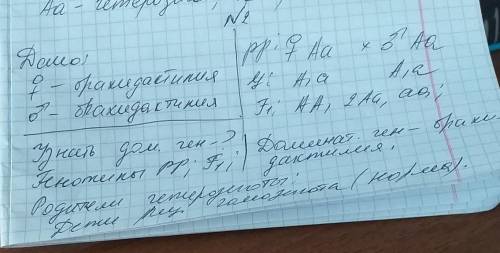 Аа - гетерозиг
№2
Дано:
♀ - брахидактилия
♂ - брахидактилия
Узнать дом. ген - ?
Генотипы РР; F₁;
РР: ♀ Аа × ♂ Аа
G: А, а А, а
F₁: АА, 2Аа, аа;
Доминат. ген - брахи-
дактилия.
Родители гетерозиготы;
Дети рец. гомозигота (норма).